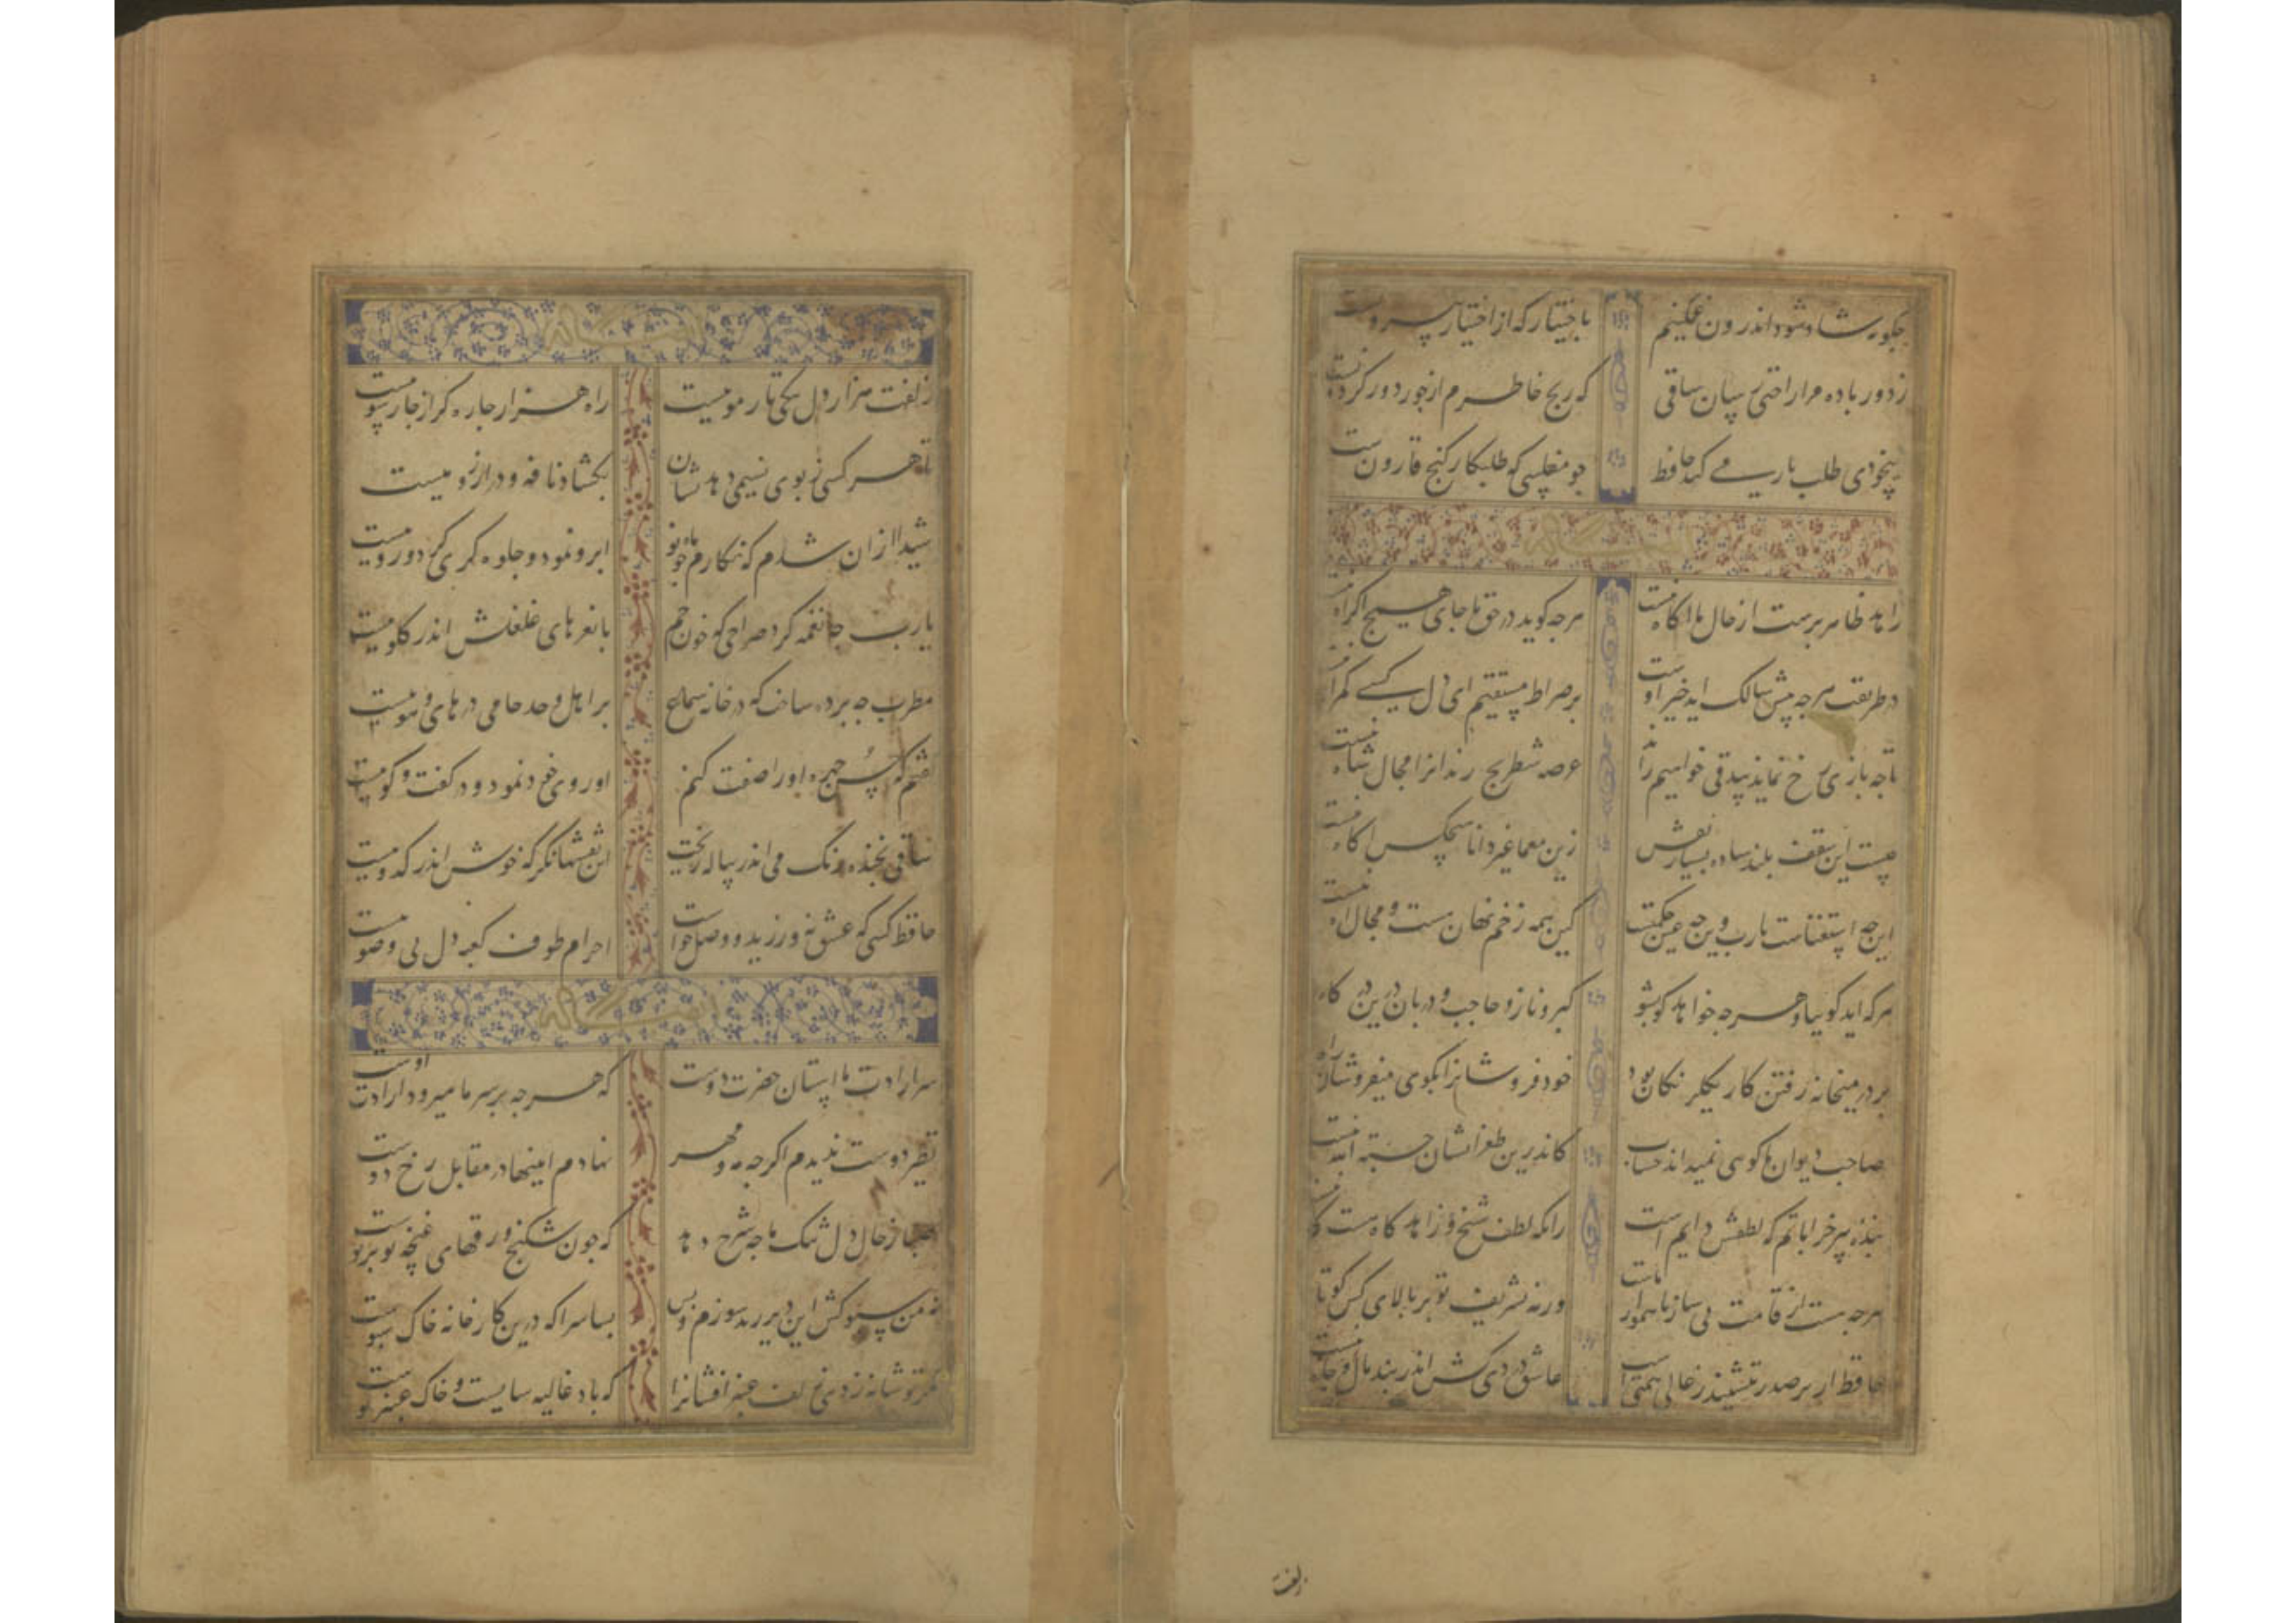 چکونه شاد شود اندرون غمکینم باختیار که از اختیار بیرونست
ز دور باده مرا راحتی رسان ساقی که رنج خاطرم از جور دور کردونست
ز بیخودی طلب یار می کند حافظ چو مفلسی که طلبکار کنج قارونست
زاهد ظاهر پرست از حال ما اکاه نیست هرچه کوید در حق ما جای هیچ اکراه نیست
در طریقت هرچه پیش سالک اید خیر اوست بر صراط مستقیم ای دل کسی کمراه نیست
تا چه بازی رخ نماید بیدقی خواهیم راند عرصه شطرنج رندانرا مجال شاه نیست
چیست این سقف بلند ساده بسیار نقش زین معما غیر دانا هیچکس اکاه نیست
این چه استغناست یارب وین چه حکمتست کین همه زخم نهان هست و مجال اه نیست
هرکه اید کو بیا و هرچه خواهد کو بشو کبر و ناز و حاجب و دربان درین درکاه نیست
بر در میخانه رفتن کار یکرنکان بود خود فروشانرا بکوی میفروشان راه نیست
صاحب دیوان ما کویی نمیداند حساب کاندرین طغرا نشان حسبة لله نیست
بنده پیر خراباتم که لطفش دایم است زانکه لطف شیخ و زاهد کاه هست و کاه نیست
هرچه هست از قامت بی ساز ناهموار ماست ورنه تشریف تو بر بالای کس کوتاه نیست
حافظ ار بر صدر ننشیند ز عالی همتی است عاشق دردی کش اندر بند مال و جاه نیست
زلفت
زلفت هزار دل بیکی تار مو ببست راه هزار چاره کر از چار سو ببست
تا هر کسی ز بوی نسیمی دهد نشان بکشاد نافه و در ارزو ببست
شیدا ازان شدم که نکارم چو ماه نو ابرو نمود و جلوه کری کرد و رو ببست
یارب چه نغمه کرد صراحی که خون خم با نغرهای غلغلش اندر کلو ببست
مطرب چه پرده ساخت که در خانه سماع بر اهل وجد و حال در های و هو ببست
کفتم کز حسن چهره او را صفت کنم او روی خود نمود و در کفت و کو ببست
ساقی بچند رنک می اندر پیاله ریخت این نقشها نکر که خوش اندر کدو ببست
حافظ کسی که عشق نورزید و وصل خواست احرام طوف کعبه دل بی وضو ببست
سر ارادت ما استان حضرت دوست که هرچه بر سر ما میرود ارادت اوست
نظیر دوست ندیدم اکرچه مه و مهر نهادم اینها در مقابل رخ دوست
صبا ز حال دل تنک ما چه شرح دهد که چون شکنج ورقهای غنچه تو بر توست
نه من سبوکش این دیر رند سوزم و بس بسا سرا که درین کارخانه خاک سبوست
مکر تو شانه زدی زلف عنبر افشانرا که باد غالیه سایست و خاک عنبر بوست